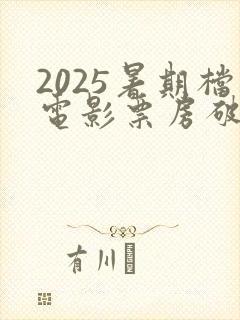 2025暑期檔
電影票房破
有川